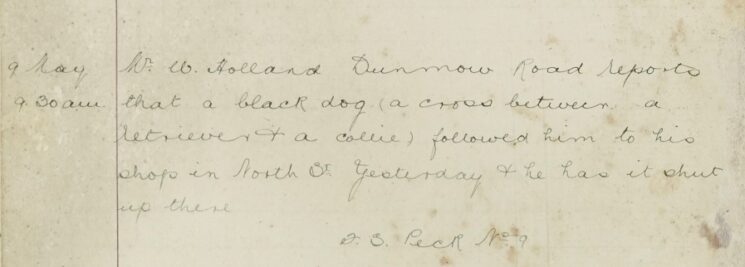 9 May Mr. W. Holland Dunmow Road reports
9 30am that a black dog (a cross between a
retriever & a collie) followed him to his
shop in North St. Yesterday & he has it shut
up there
Peck No 9